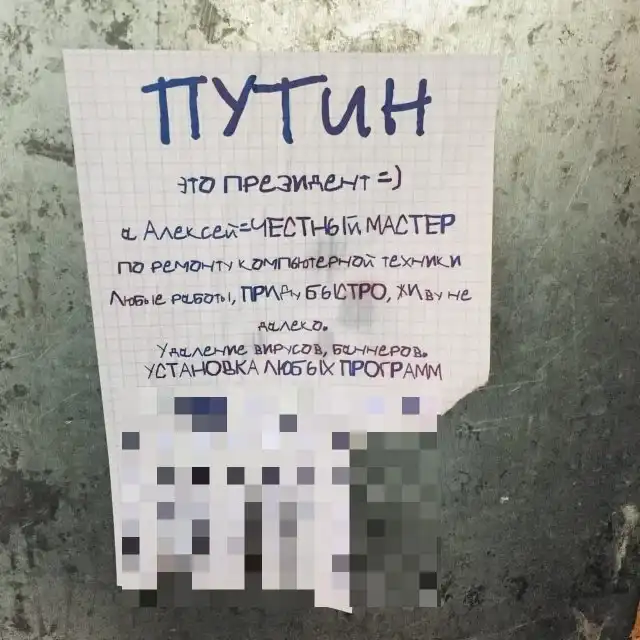 ПУТИН
это ПРЕЗИДЕНТ =)
а Алексей=ЧЕСТНЫЙ МАСТЕР
по ремонту компьютерной техники
Любые работы, ПРИДУ БЫСТРО, живу не
далеко.
Удаление вирусов, баннеров.
УСТАНОВКА ЛЮБЫХ ПРОГРАММ